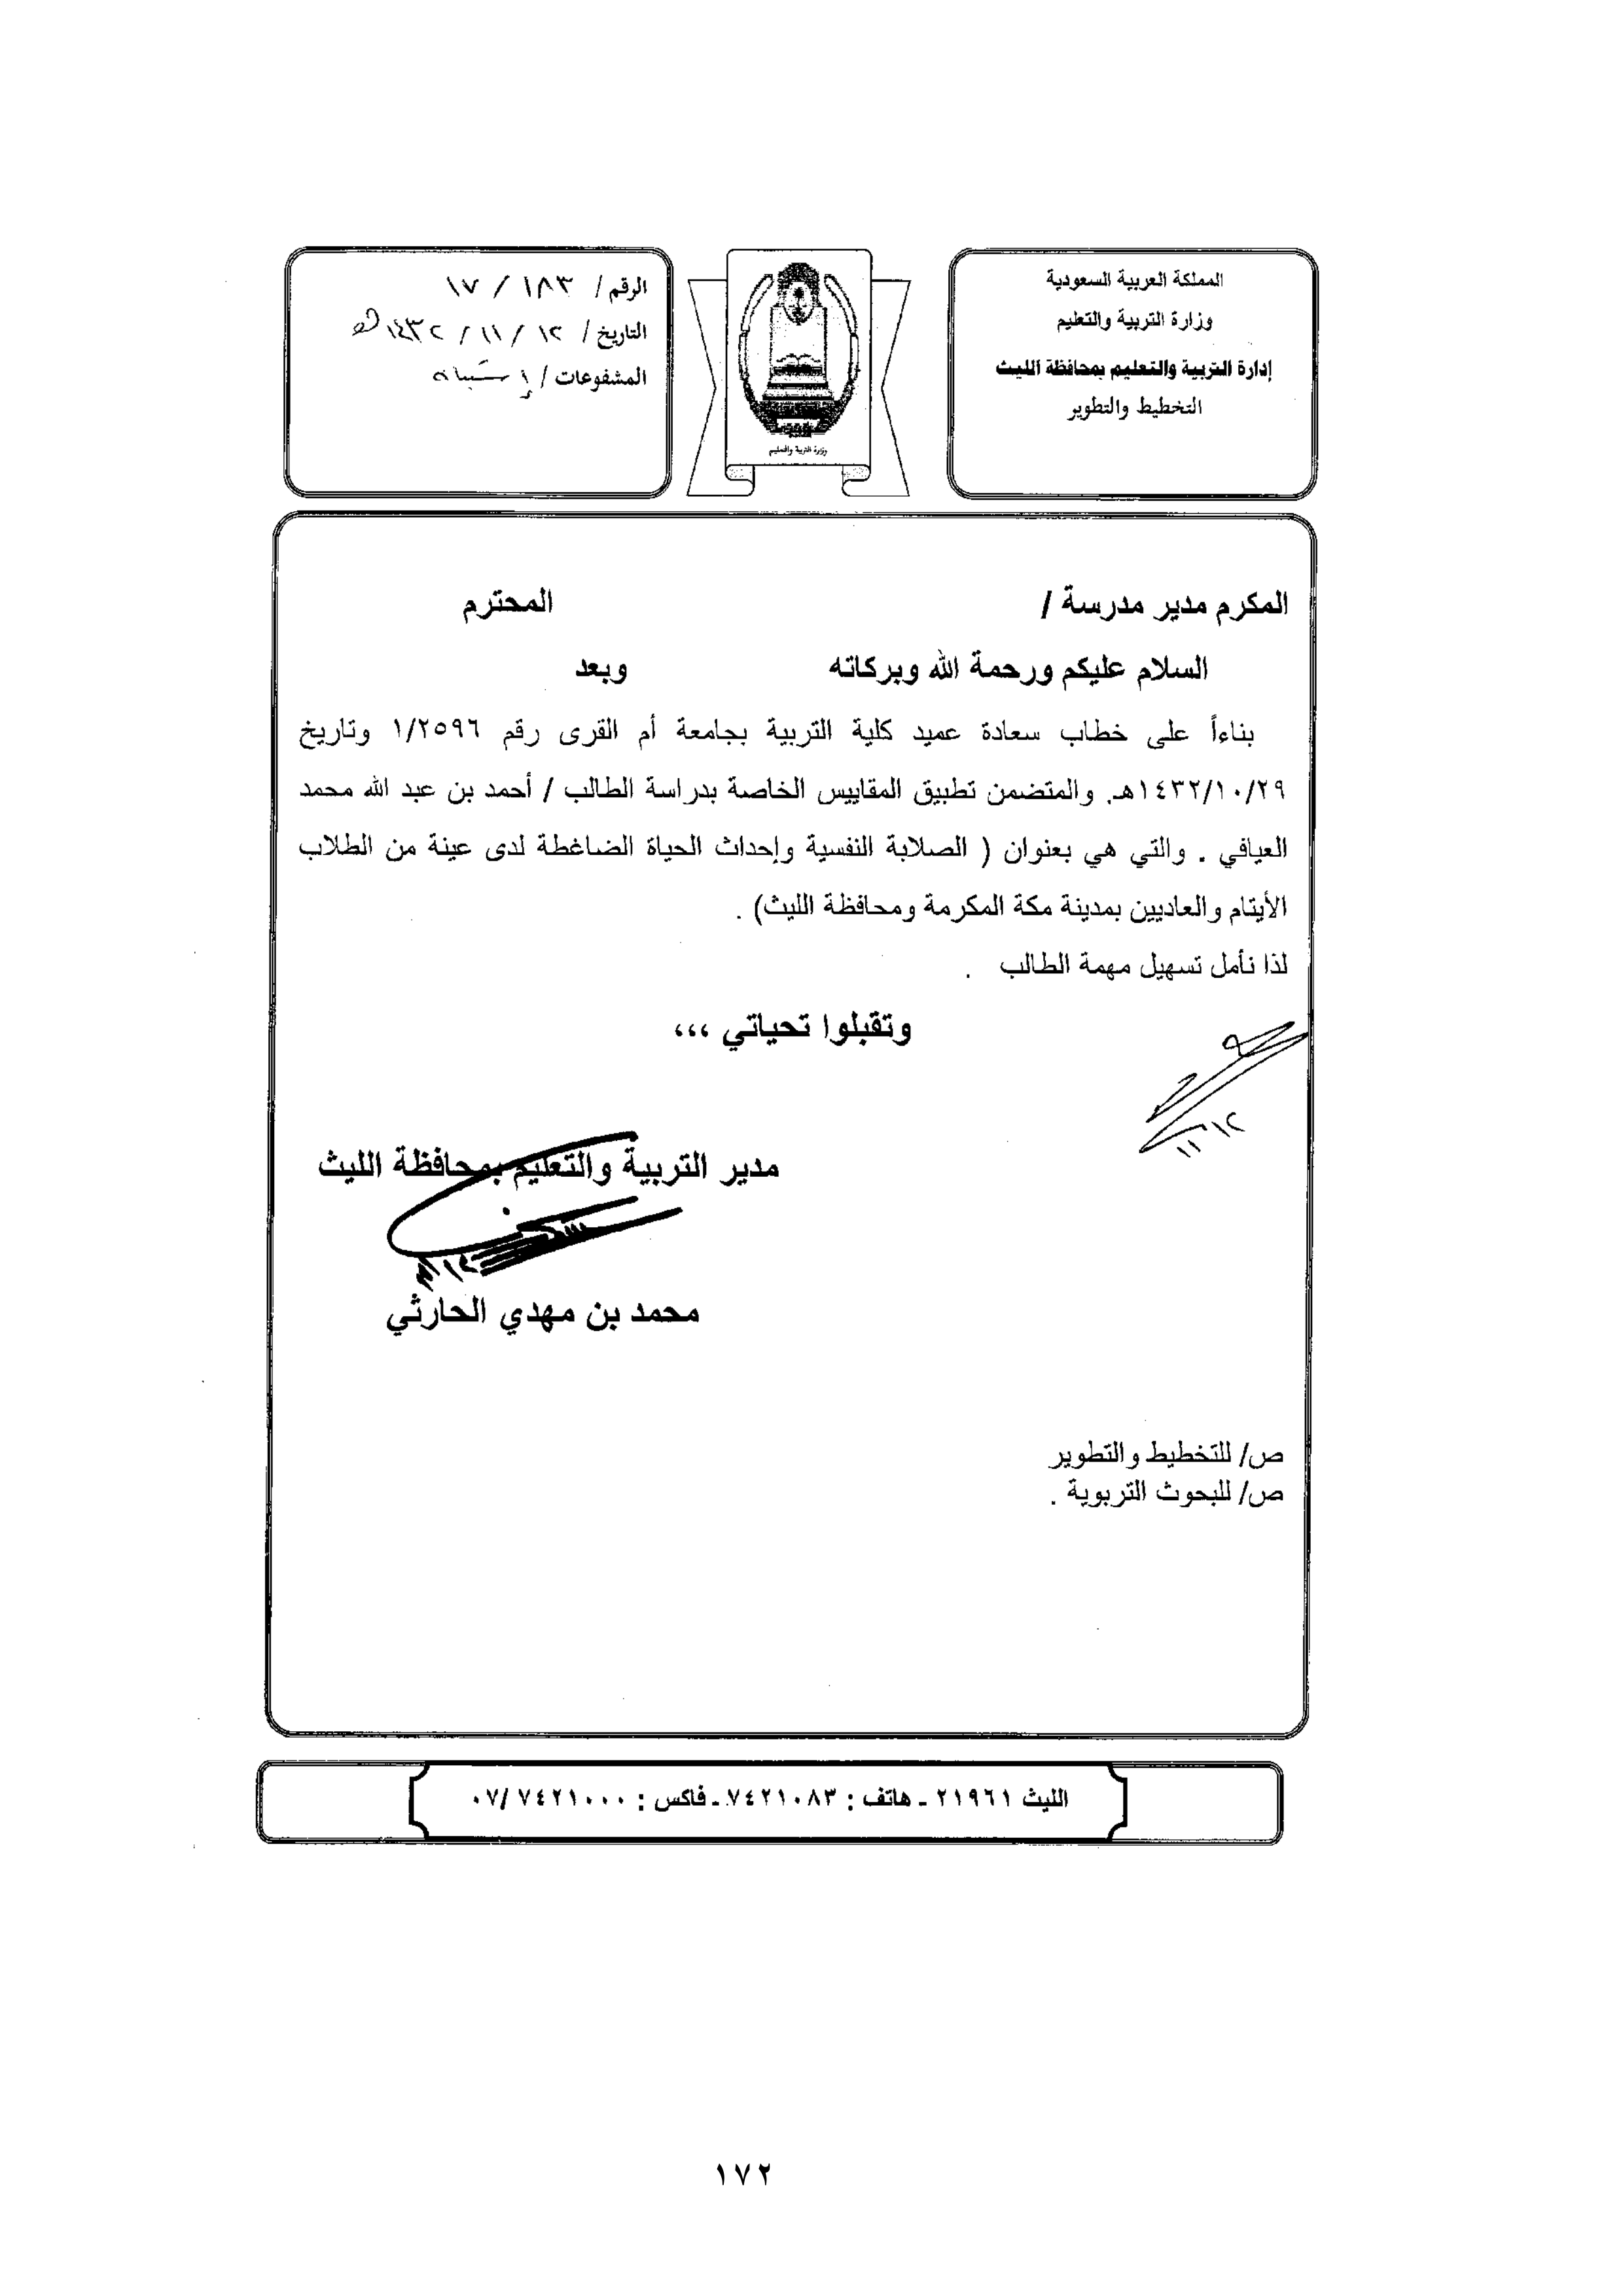 المملكة العربية السعودية
وزارة التربية والتعليم
إدارة التربية والتعليم بمحافظة الليث
التخطيط والتطوير
وزارة التربية والتعليم
الرقم / ١٨٣ / ١٧
التاريخ / ١٢ / ١١ / ١٤٣٢هـ
المشفوعات / إستبانه
المكرم مدير مدرسة / المحترم
السلام عليكم ورحمة الله وبركاته وبعد
بناءاً على خطاب سعادة عميد كلية التربية بجامعة أم القرى رقم ١/٢٥٩٦ وتاريخ
١٤٣٢/١٠/٢٩هـ. والمتضمن تطبيق المقاييس الخاصة بدراسة الطالب / أحمد بن عبد الله محمد
العيافي . والتي هي بعنوان ( الصلابة النفسية وإحداث الحياة الضاغطة لدى عينة من الطلاب
الأيتام والعاديين بمدينة مكة المكرمة ومحافظة الليث) .
لذا نأمل تسهيل مهمة الطالب .
وتقبلوا تحياتي ،،،
١١/١٢
مدير التربية والتعليم بمحافظة الليث
محمد بن مهدي الحارثي
ص/ للتخطيط والتطوير
ص/ للبحوث التربوية .
الليث ٢١٩٦١ - هاتف : ٧٤٢١٠٨٣ - فاكس : ٠٧/ ٧٤٢١٠٠٠
١٧٢